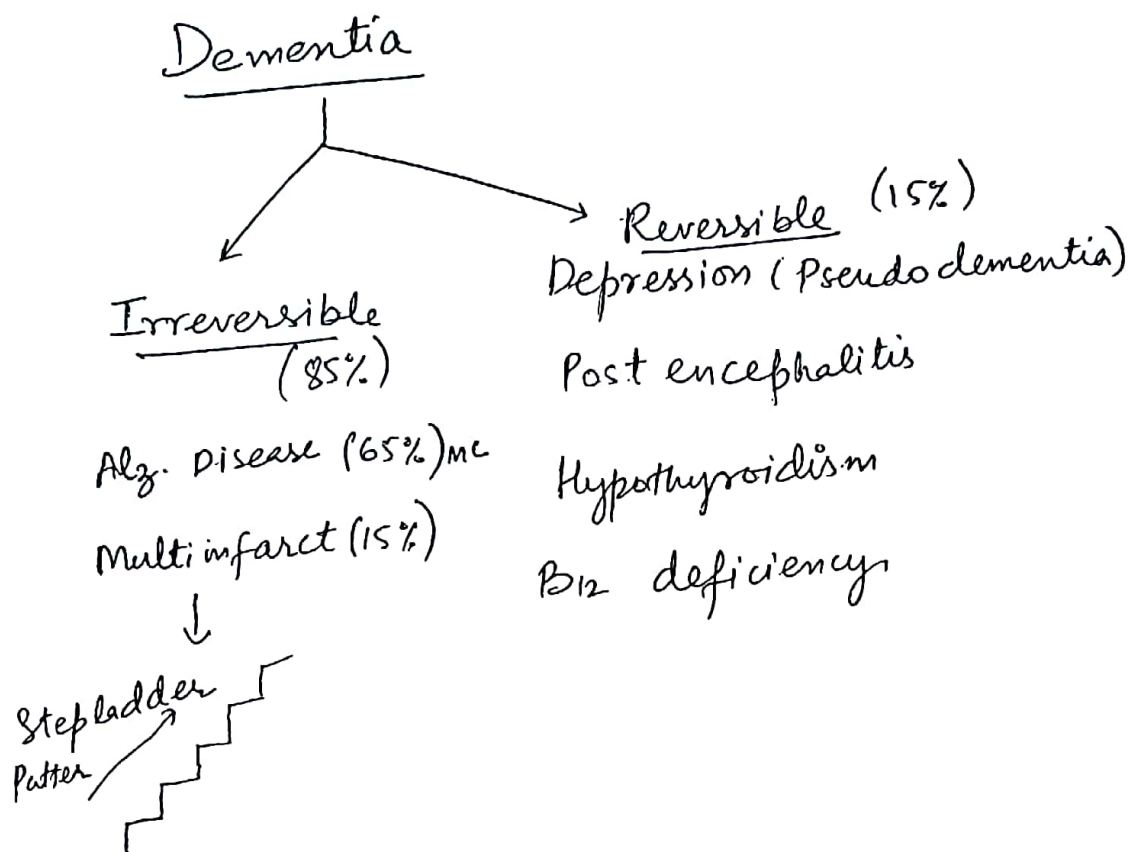 Dementia
Irreversible
(85%)
Alz. Disease (65%) MC
Multi infarct (15%)
Stepladder
Patter
Reversible (15%)
Depression (Pseudo dementia)
Post encephalitis
Hypothyroidism
B12 deficiency